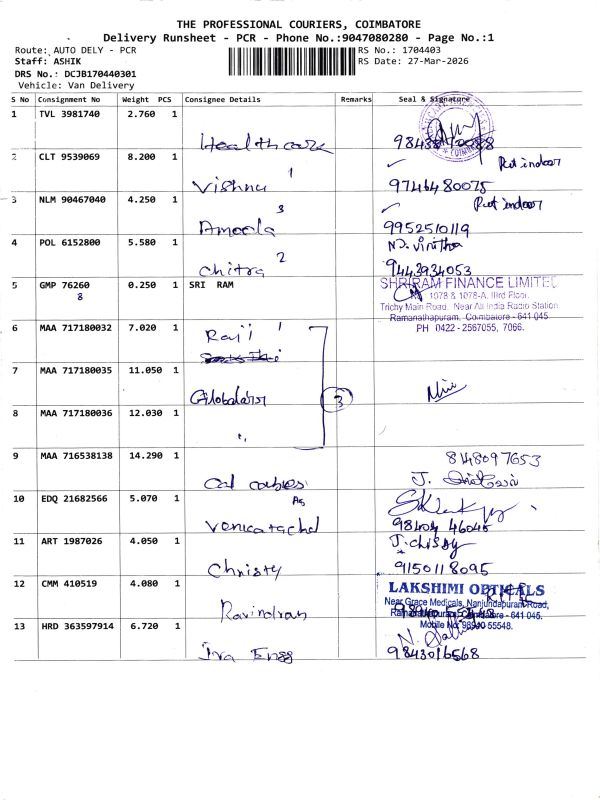 THE PROFESSIONAL COURIERS, COIMBATORE
Delivery Runsheet - PCR - Phone No.:9047080280 - Page No.:1
Route: AUTO DELY - PCR RS No.: 1704403
Staff: ASHIK RS Date: 27-Mar-2026
DRS No.: DCJB170440301
Vehicle: Van Delivery
S No Consignment No Weight PCS Consignee Details Remarks Seal & Signature
1 TVL 3981740 2.760 1
Healthcare
2 CLT 9539069 8.200 1 Put indoor
Vishnu 1 9746480075
3 NLM 90467040 4.250 1 Put indoor
Amoola 3 9952510119
4 POL 6152800 5.580 1 N. Vinitha
Chitra 2 9443934053
5 GMP 76260 0.250 1 SRI RAM SHRIRAM FINANCE LIMITED
8 1078 & 1078-A, IIIrd Floor,
Trichy Main Road, Near All India Radio Station
Ramanathapuram, Coimbatore - 641 045
PH 0422 - 2567055, 7066.
6 MAA 717180032 7.020 1 Raji 1
7 MAA 717180035 11.050 1
Globalarst 3
8 MAA 717180036 12.030 1
9 MAA 716538138 14.290 1 848097653
Cal cables J.
10 EDQ 21682566 5.070 1 As
Venkatachal 98404 46045
11 ART 1987026 4.050 1 J. chisty
Christy 9150118095
12 CMM 410519 4.080 1 LAKSHIMI OPTICALS
Near Grace Medicals, Nanjundapuram Road,
Ravindran Ramanathapuram, Coimbatore - 641 045.
13 HRD 363597914 6.720 1 Mobile No: 98940 55548.
Iva Engg 9843016568